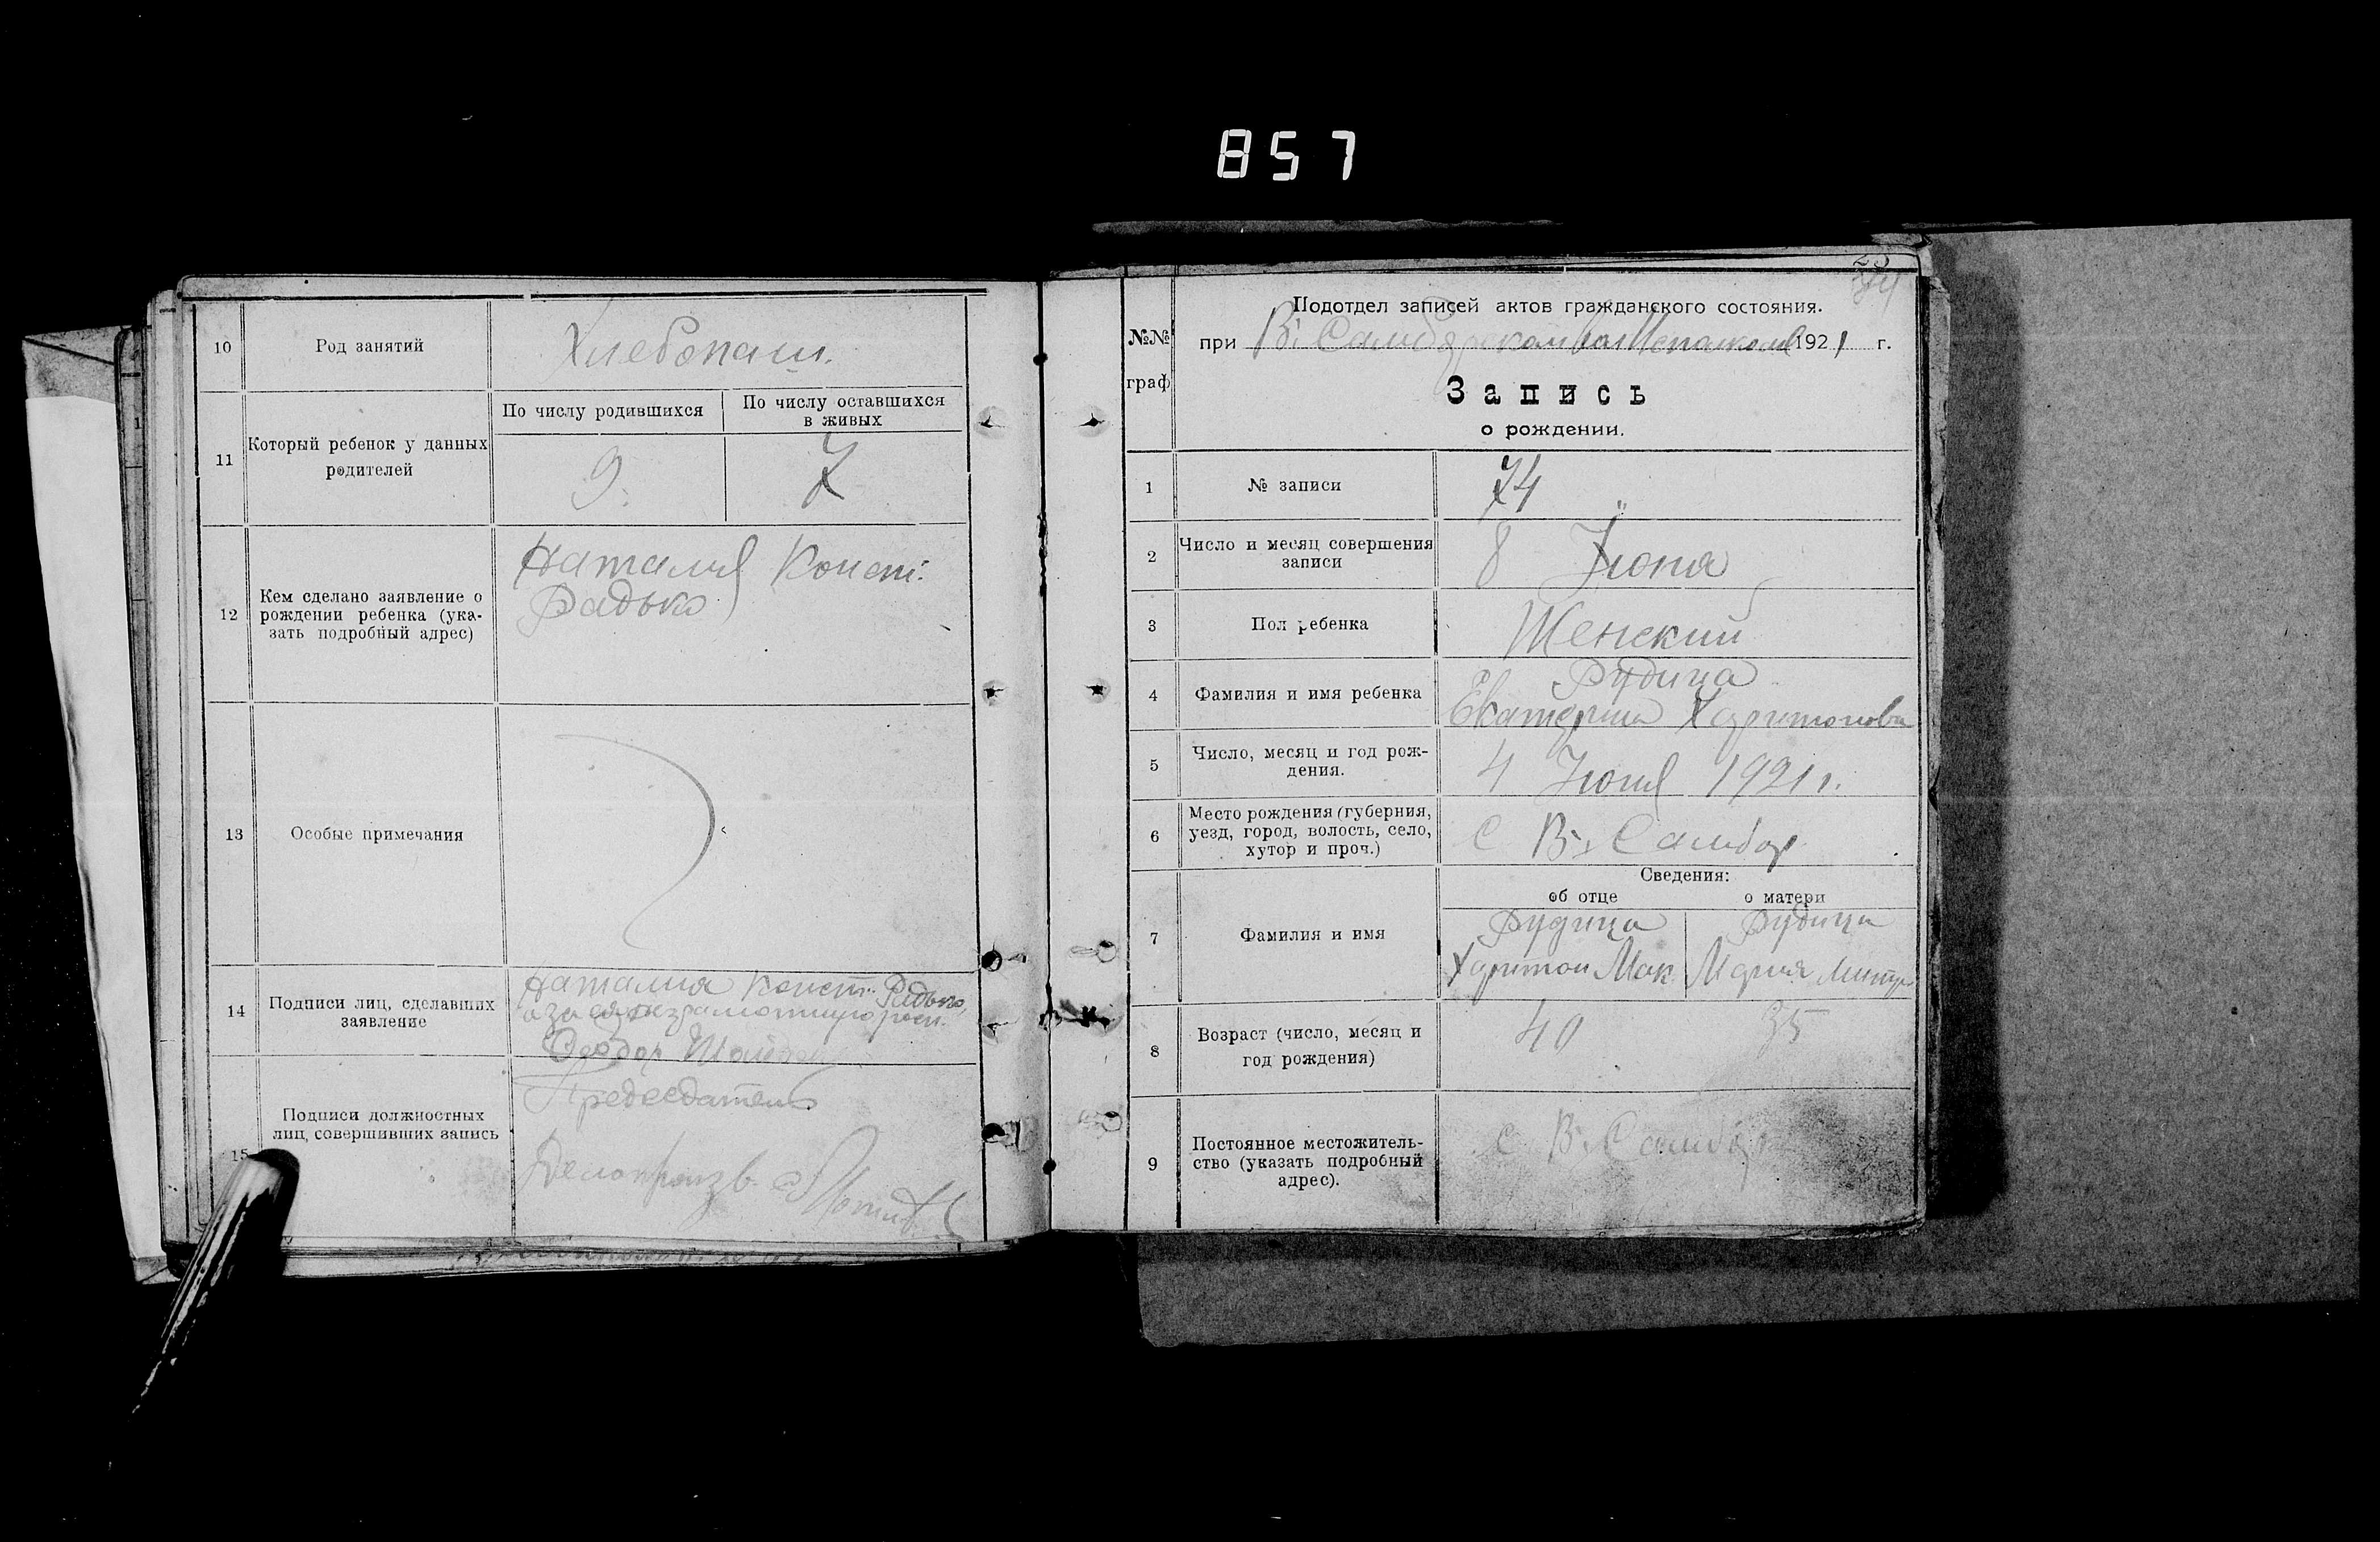 857
10
Род занятий
Хлебопаш.
11
Который ребенок у данных
родителей
По числу родившихся
По числу оставшихся
в живых
9
7
12
Кем сделано заявление о
рождении ребенка (ука-
зать подробный адрес)
Наталия Конст.
Радько
13
Особые примечания
14
Подписи лиц, сделавших
заявление
Наталия Конст. Радько,
а за неграмотную росп.
Феодор
15
Подписи должностных
лиц, совершивших запись
Председатель
Делопроизв.
№№
граф
Подотдел записей актов гражданского состояния.
при В. Самборском Вол Исполкоме 1921 г.
Запись
о рождении.
1
№ записи
74
2
Число и месяц совершения
записи
8 Июня
3
Пол ребенка
Женский
4
Фамилия и имя ребенка
Рудица
Екатерина Харитонова
5
Число, месяц и год рож-
дения.
4 Июня 1921 г.
6
Место рождения (губерния,
уезд, город, волость, село,
хутор и проч.)
С В. Самбор
Сведения:
об отце
о матери
7
Фамилия и имя
Рудица
Харитон Мак.
Рудица
Мария
8
Возраст (число, месяц и
год рождения)
40
35
9
Постоянное местожитель-
ство (указать подробный
адрес).
С В. Самбор